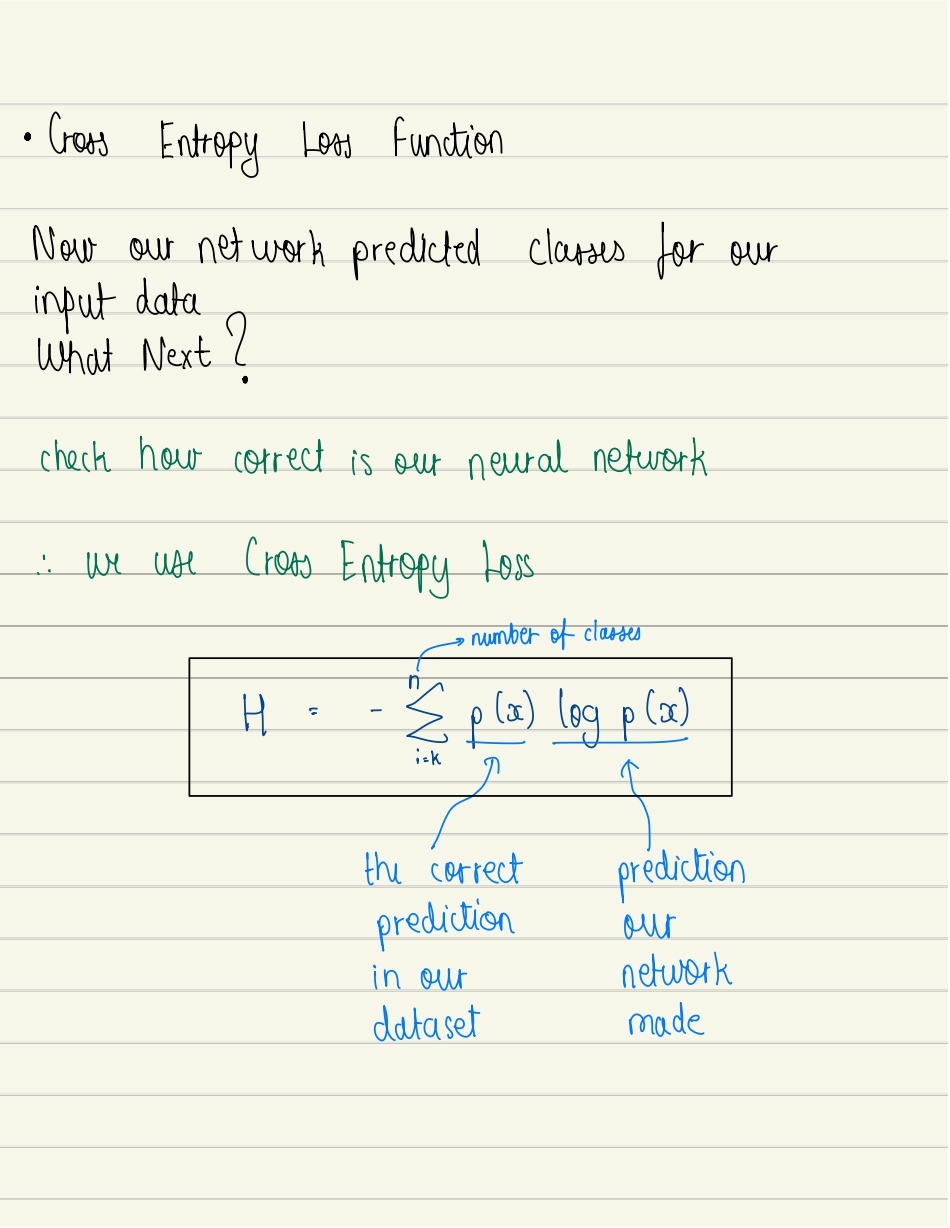 • Cross Entropy Loss Function
Now our network predicted classes for our
input data
What Next?
check how correct is our neural network
∴ we use Cross Entropy Loss
number of classes
n
H = - ∑ p(x) log p(x)
i=k
the correct
prediction
in our
dataset
prediction
our
network
made